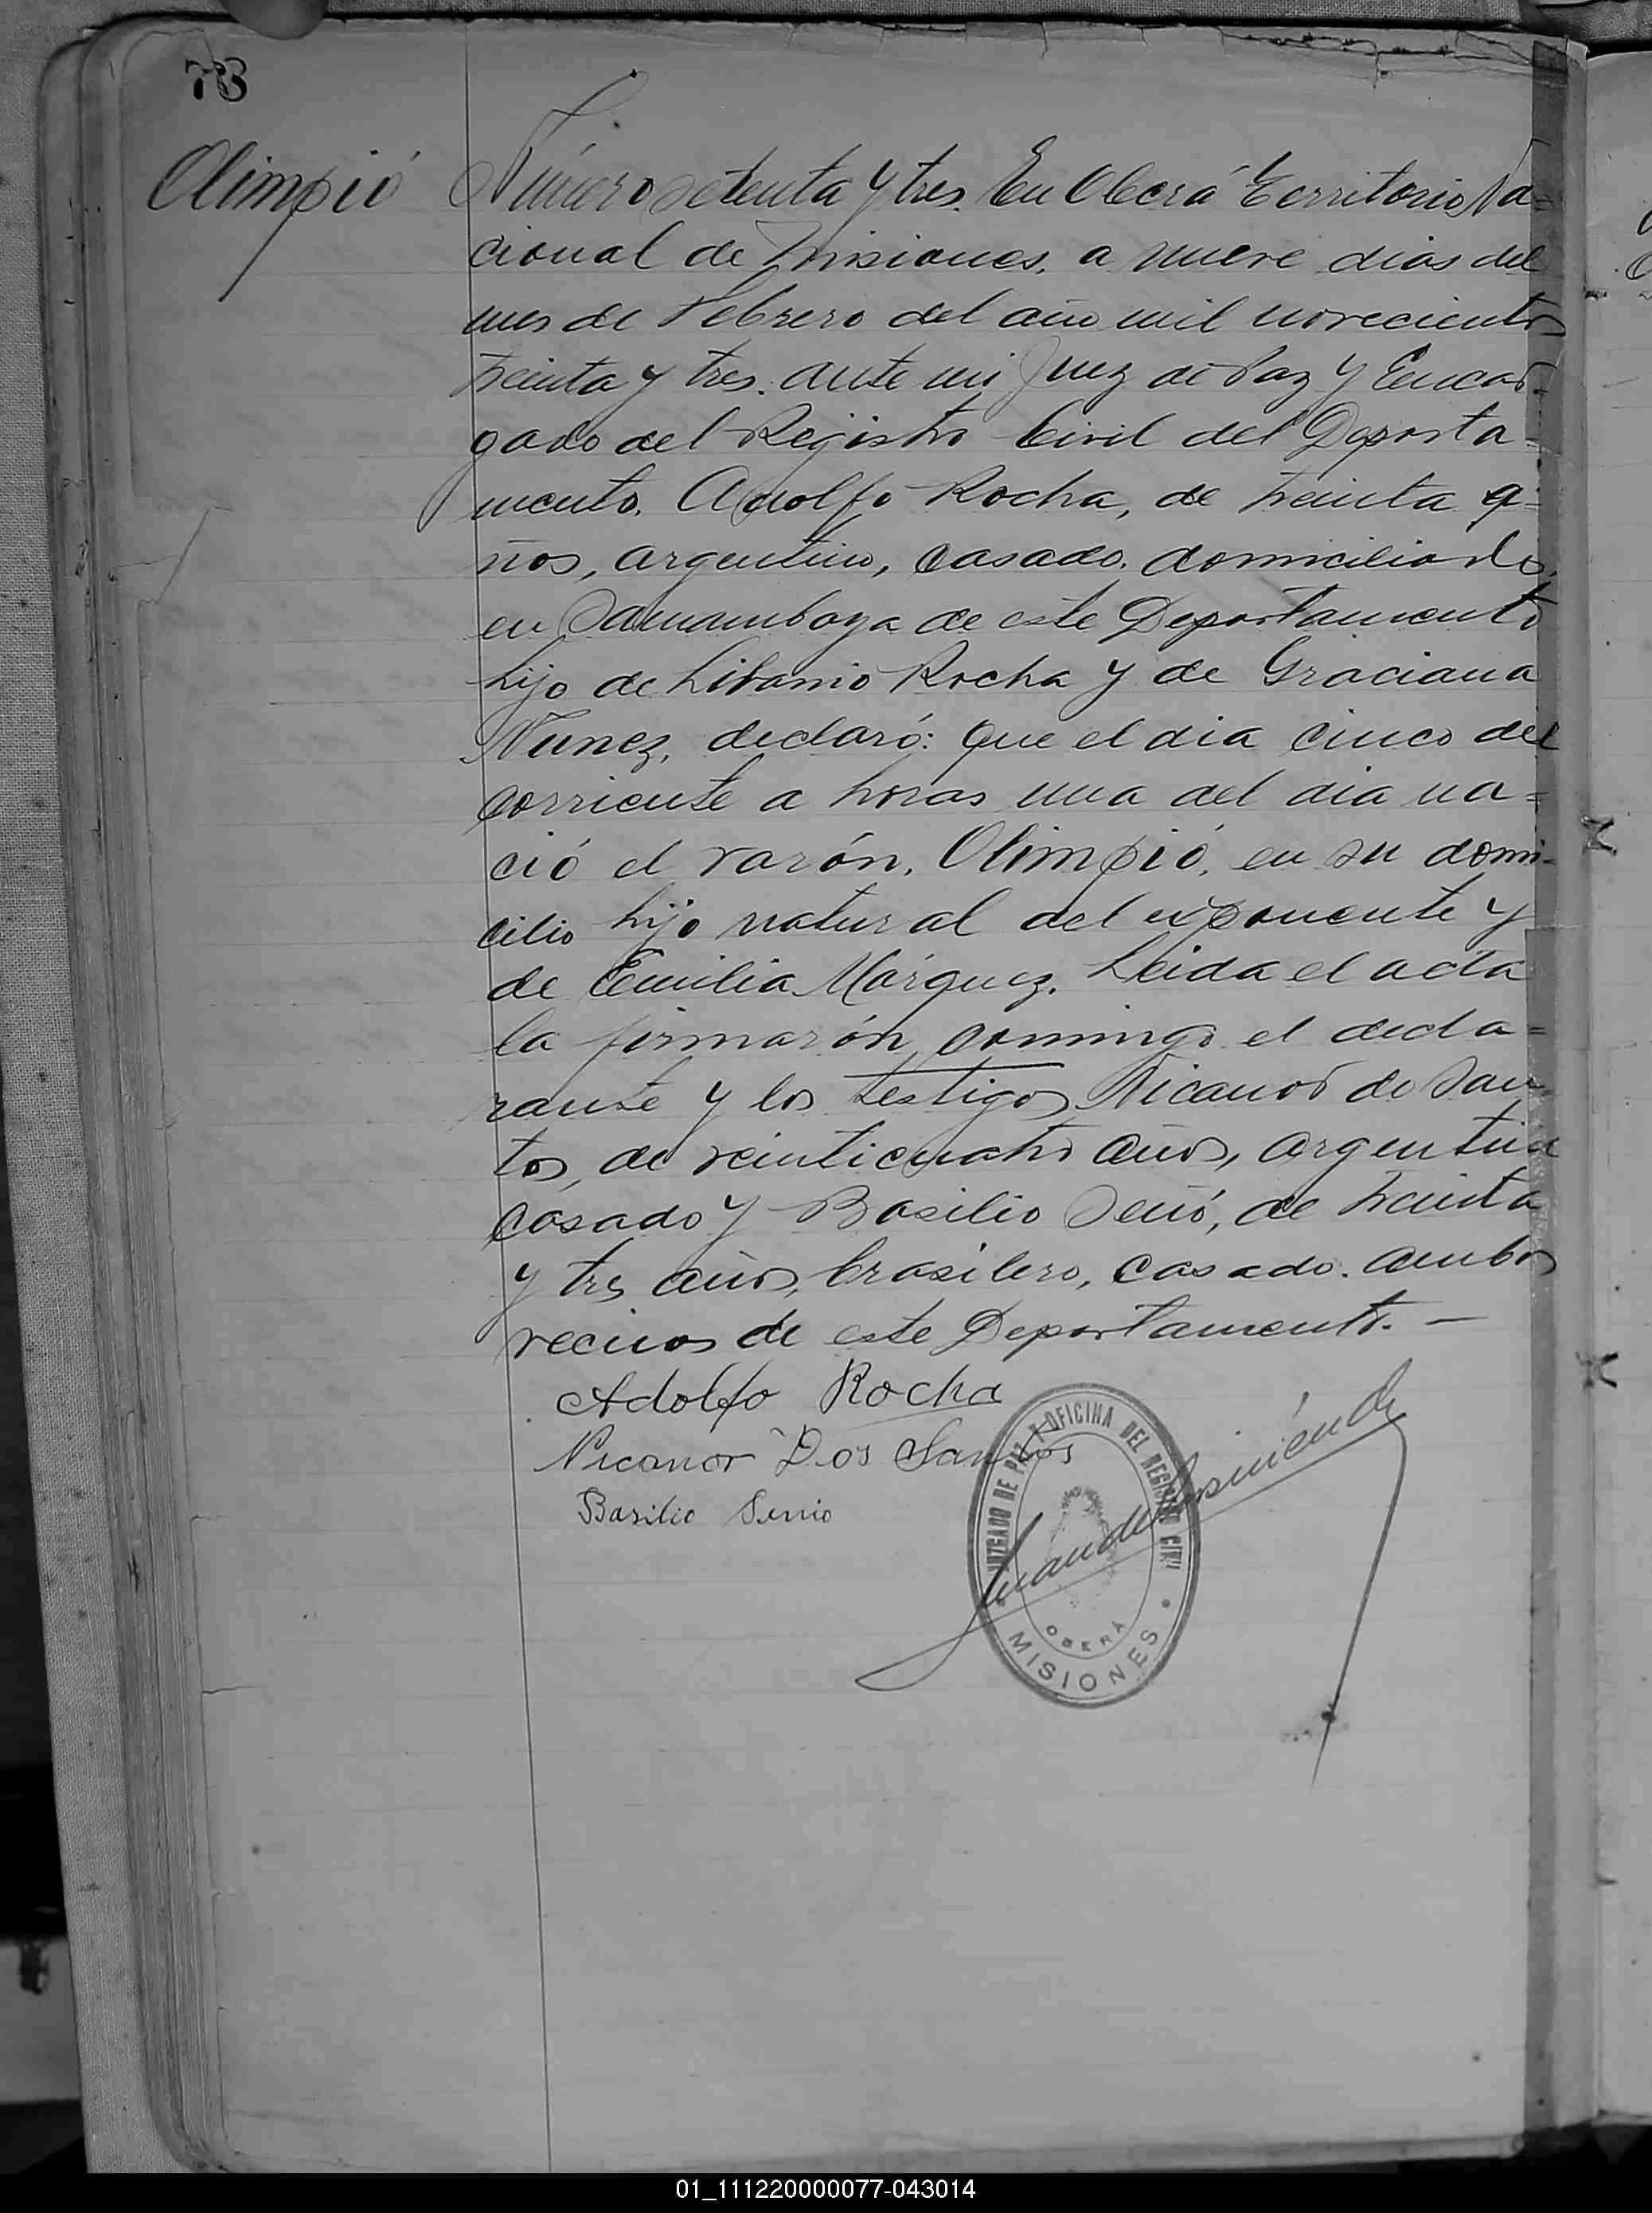 73
Olimpió
Número setenta y tres. En Oberá Territorio Na=
cional de Misiones, a nueve dias del
mes de Febrero del año mil novecientos
treinta y tres. ante mi Juez de Paz y Encar-
gado del Registro Civil del Departa-
mento. Adolfo Rocha, de treinta a-
ños, argentino, casado, domiciliado
en Samambaya de este Departamento
hijo de Libanio Rocha y de Graciana
Nunez, declaró: que el dia cinco del
corriente a horas una del dia na=
ció el varón, Olimpió, en su domi-
cilio hijo natural del exponente y
de Emilia Márquez. Leida el acta
la firmarón conmigo el decla=
rante y los testigos Nicanor do San-
tos, de veinticuatro años, argentino
casado y Basilio Senió, de treinta
y tres años, brasilero, casado. ambos
vecinos de este Departamento. —
Adolfo Rocha
Nicanor Dos Santos
Basilio Senio
JUZGADO DE PAZ Y OFICINA DEL REGISTRO CIVIL
OBERÁ
MISIONES
01_111220000077-043014